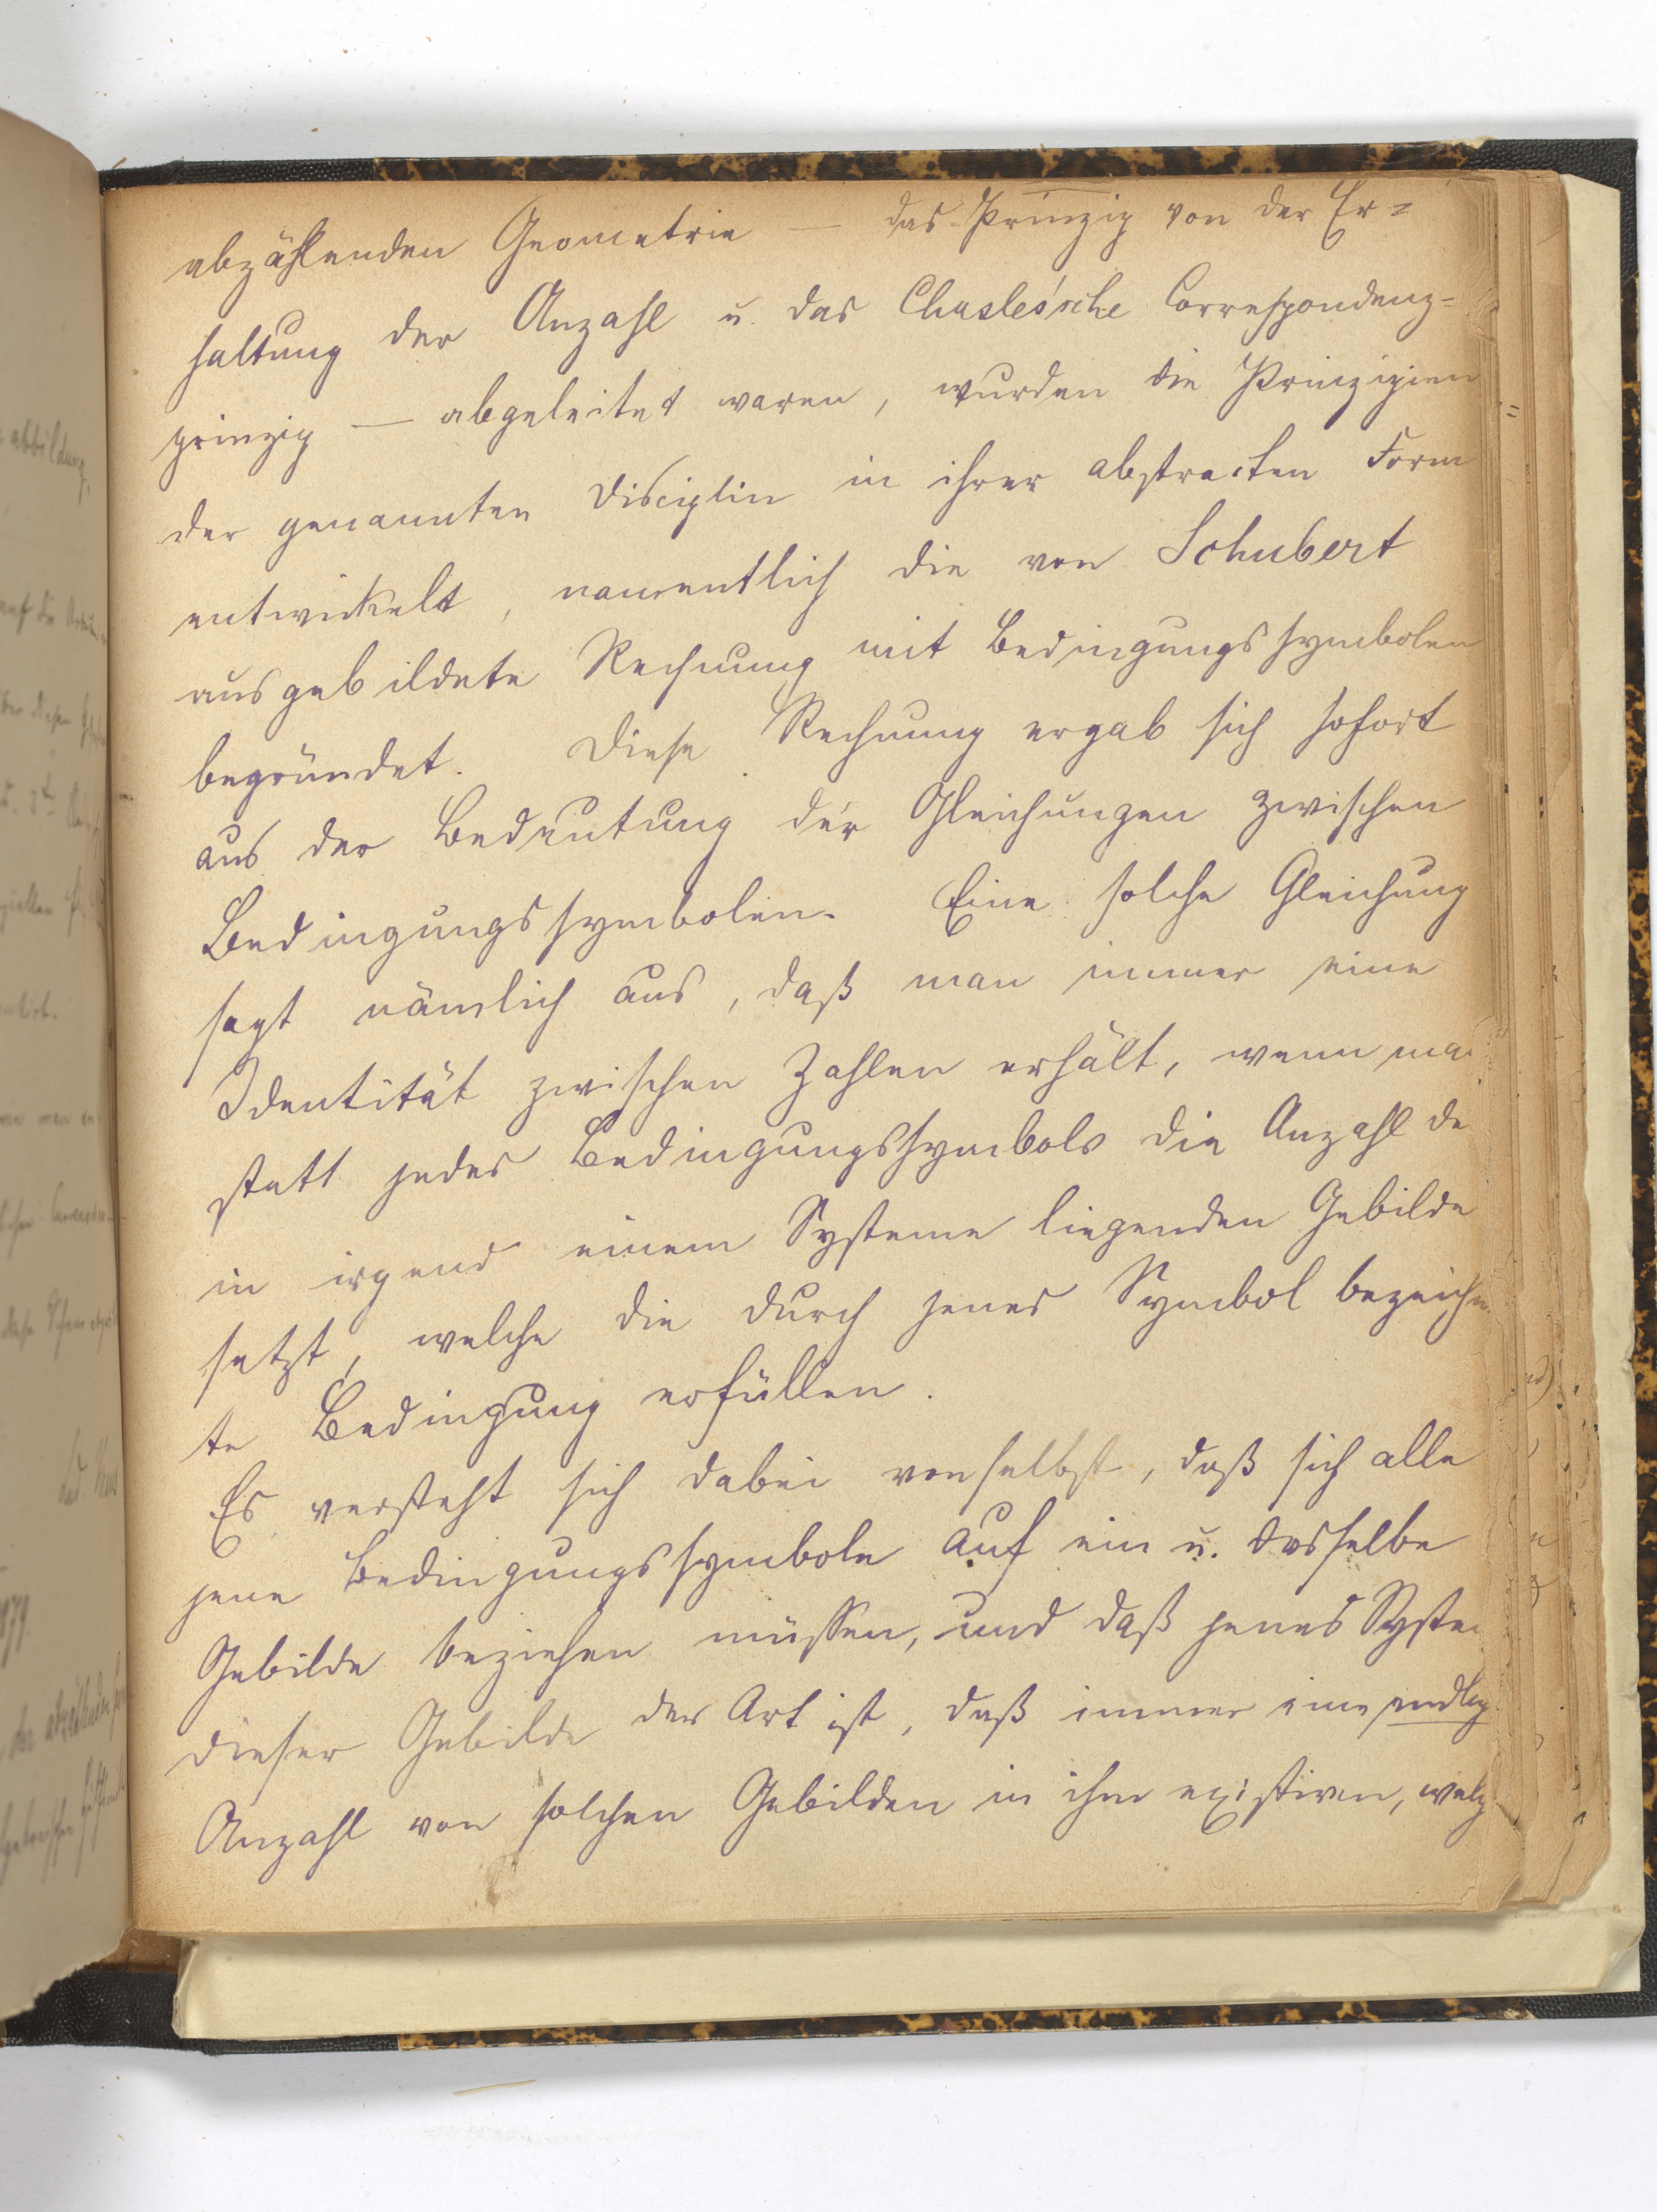 abzählenden Geometrie — das Prinzip von der Er=
haltung der Anzahl u. das Chasles'sche Correspondenz=
prinzip — abgeleitet waren, wurden die Prinzipien
der genannten Disciplin in ihrer abstracten Form
entwickelt, namentlich die von Schubert
ausgebildete Rechnung mit Bedingungssymbolen
begründet. Diese Rechnung ergab sich sofort
aus der Bedeutung der Gleichungen zwischen
Bedingungssymbolen. Eine solche Gleichung
sagt nämlich aus, daß man immer eine
Identität zwischen Zahlen erhält, wenn ma
statt jedes Bedingungssymbols die Anzahl de
in irgend einem Systeme liegenden Gebilde
setzt, welche die durch jenes Symbol bezeichn
te Bedingung erfüllen.
Es versteht sich dabei von selbst, daß sich alle
jene Bedingungssymbole auf ein u. dasselbe
Gebilde beziehen müssen, und daß jenes Syste
dieser Gebilde der Art ist, daß immer eine endlig
Anzahl von solchen Gebilden in ihm existiren, welc